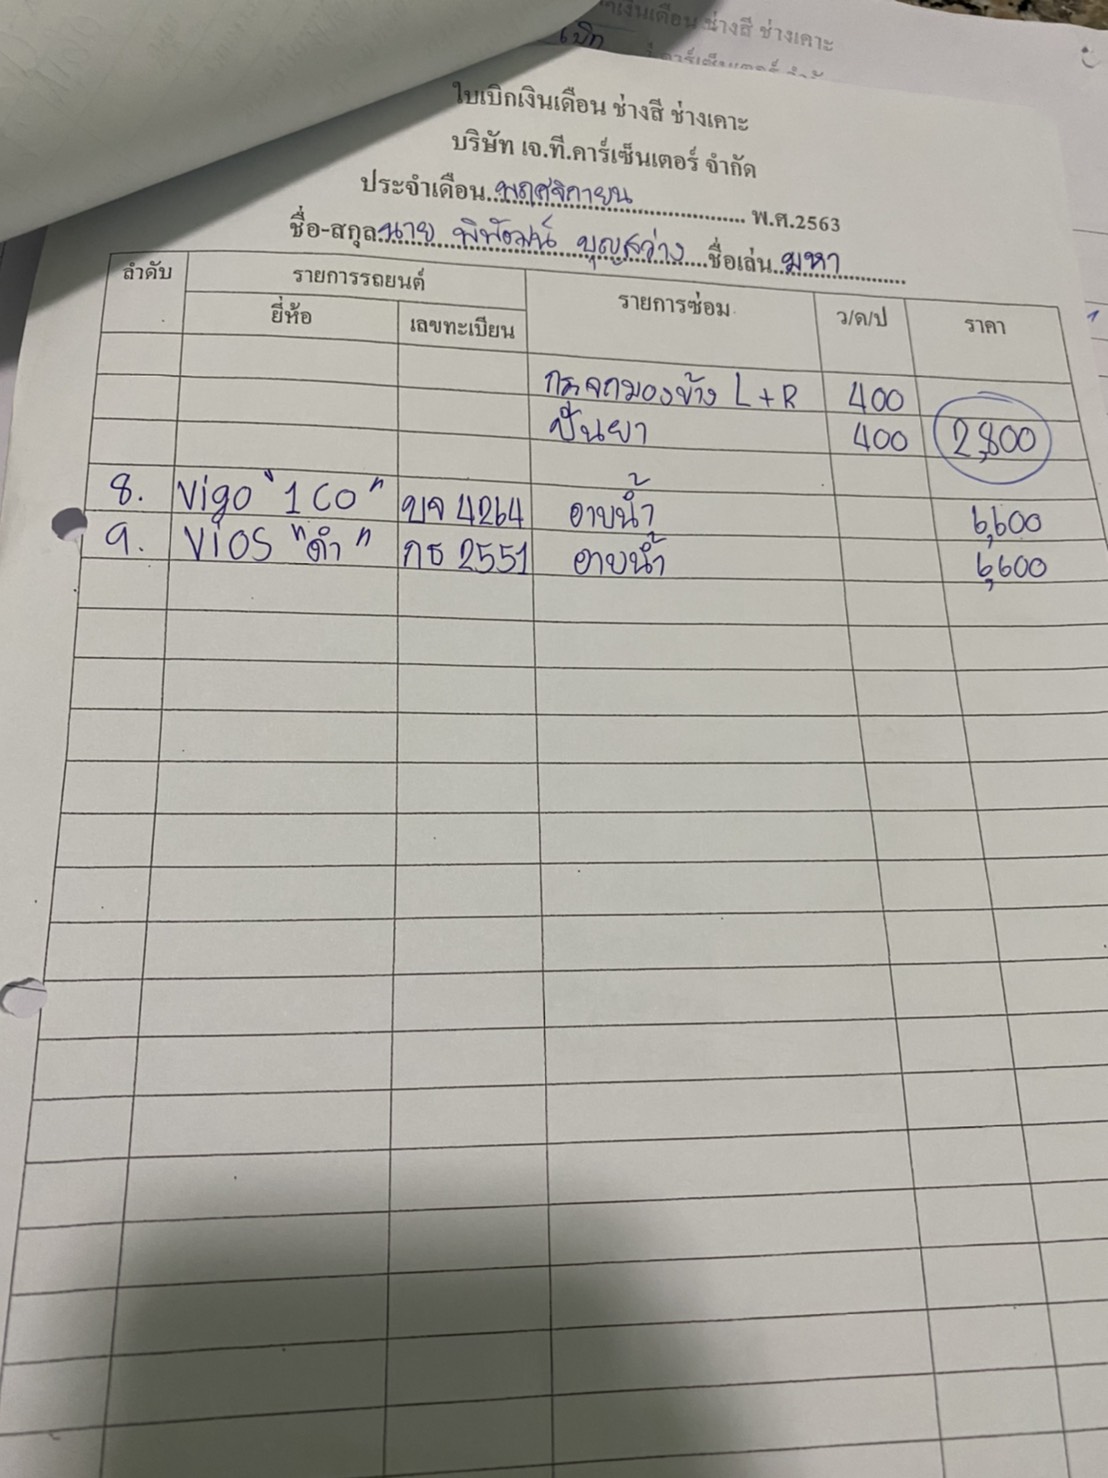 ช่างสี ช่างเคาะ
เบิก
ใบเบิกเงินเดือน ช่างสี ช่างเคาะ
บริษัท เจ.ที.คาร์เซ็นเตอร์ จำกัด
ประจำเดือน พฤศจิกายน พ.ศ.2563
ชื่อ-สกุล นาย พิพัฒน์ บุญสว่าง ชื่อเล่น มหา
ลำดับ รายการรถยนต์ รายการซ่อม ว/ด/ป ราคา
ยี่ห้อ เลขทะเบียน
กระจกมองข้าง L+R 400
ปั่นยา 400 2,800
8. Vigo "1 CO" บจ 4264 อาบน้ำ 6,600
9. VIOS "ดำ" กธ 2551 อาบน้ำ 6,600